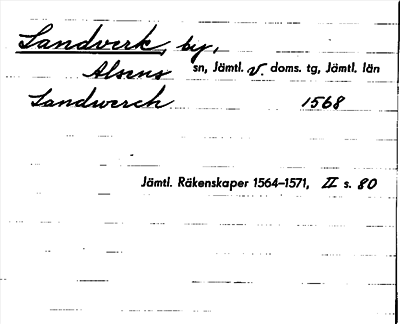 Landverk, by,
Alsens sn, Jämtl. v. doms. tg, Jämtl. län
Landwerch 1568
Jämtl. Räkenskaper 1564–1571, II s. 80